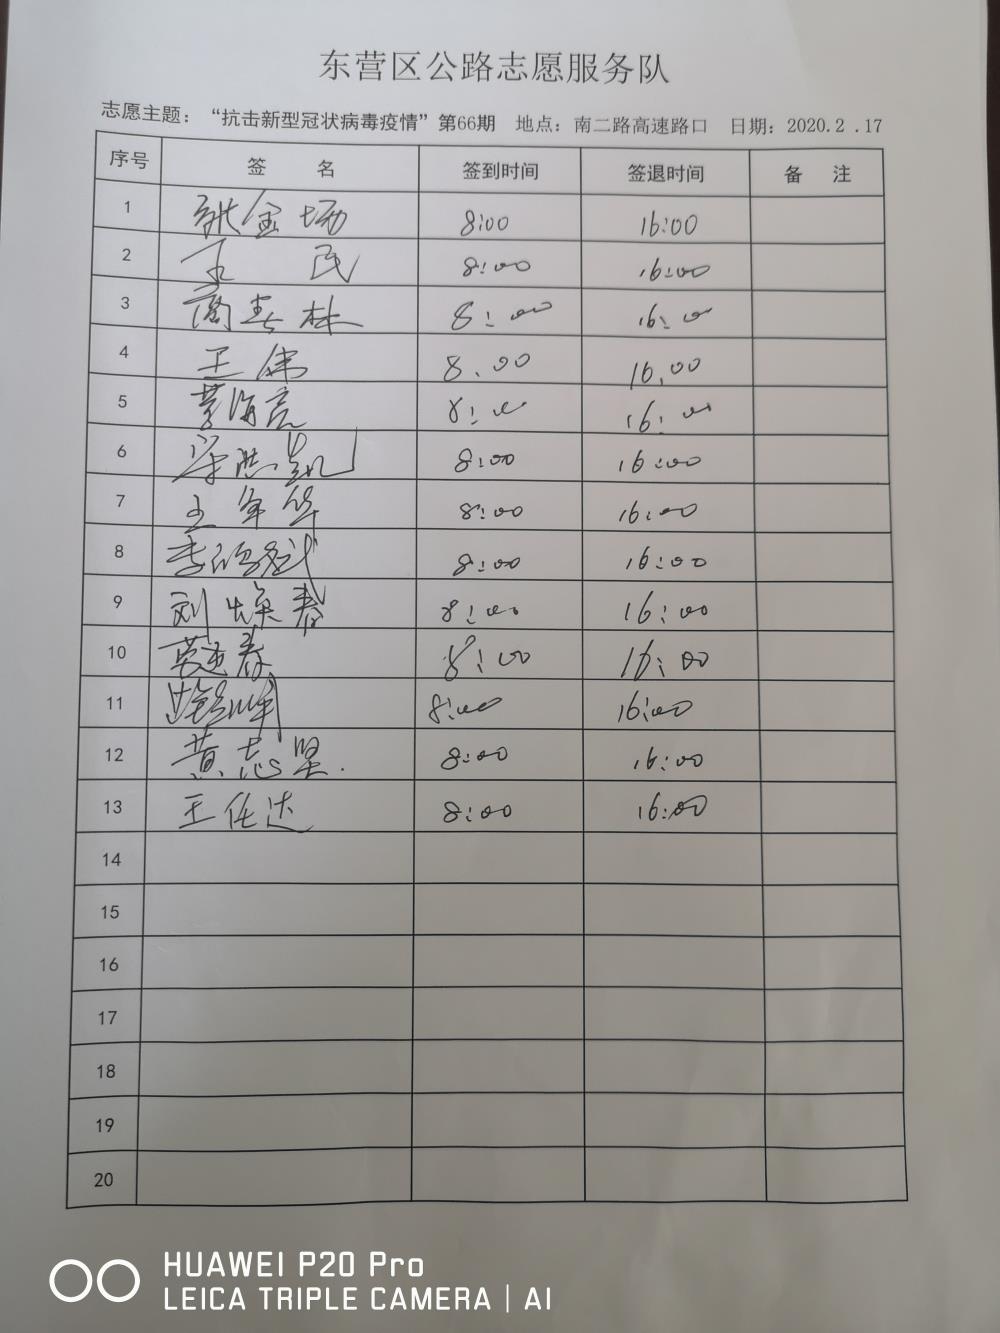 东营区公路志愿服务队
志愿主题：“抗击新型冠状病毒疫情”第66期 地点：南二路高速路口 日期：2020.2.17
序号 签 名 签到时间 签退时间 备 注
1 张金场 8:00 16:00
2 王民 8:00 16:00
3 春林 8:00 16:00
4 王伟 8.00 16.00
5 海亮 8:00 16:00
6 8:00 16:00
7 王军华 8:00 16:00
8 李 8:00 16:00
9 刘焕春 8:00 16:00
10 春 8:00 16:00
11 8:00 16:00
12 黄志坚. 8:00 16:00
13 王任达 8:00 16:00
14
15
16
17
18
19
20
HUAWEI P20 Pro
LEICA TRIPLE CAMERA | AI